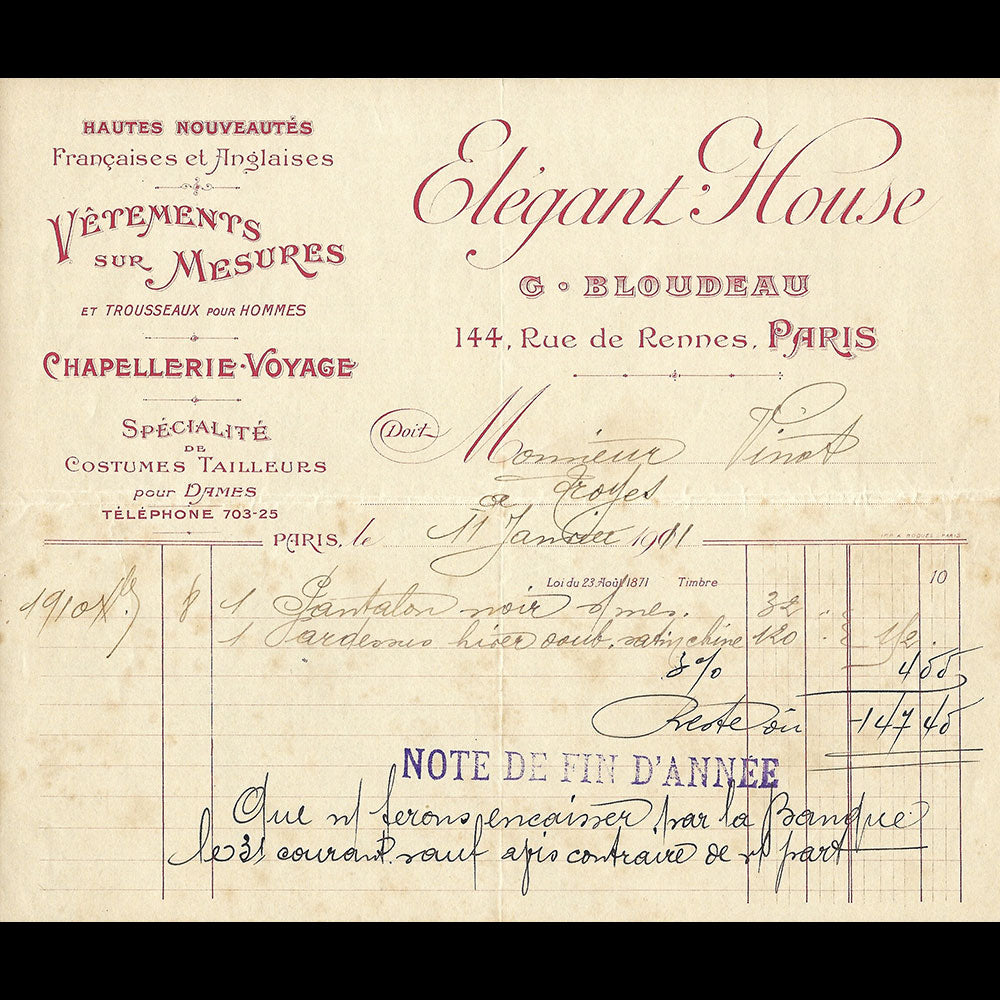 HAUTES NOUVEAUTÉS
Françaises et Anglaises
VÊTEMENTS
SUR MESURES
ET TROUSSEAUX POUR HOMMES
CHAPELLERIE-VOYAGE
SPÉCIALITÉ
DE
COSTUMES TAILLEURS
pour DAMES
TÉLÉPHONE 703-25
Elégant House
G. BLOUDEAU
144, Rue de Rennes, PARIS
Doit Monsieur Vinot
à Troyes
PARIS, le 11 Janvier 1911
IMP. A. ROQUEL. PARIS
Loi du 23 Août 1871 Timbre 10
1910 8 1 Pantalon noir s/mes. 32
1 Pardessus hiver doub. satin chine 120 152
3% 4 55
Reste dû 147 45
NOTE DE FIN D'ANNÉE
Que n/ ferons encaisser par la Banque
le 31 courant sauf avis contraire de v/ part